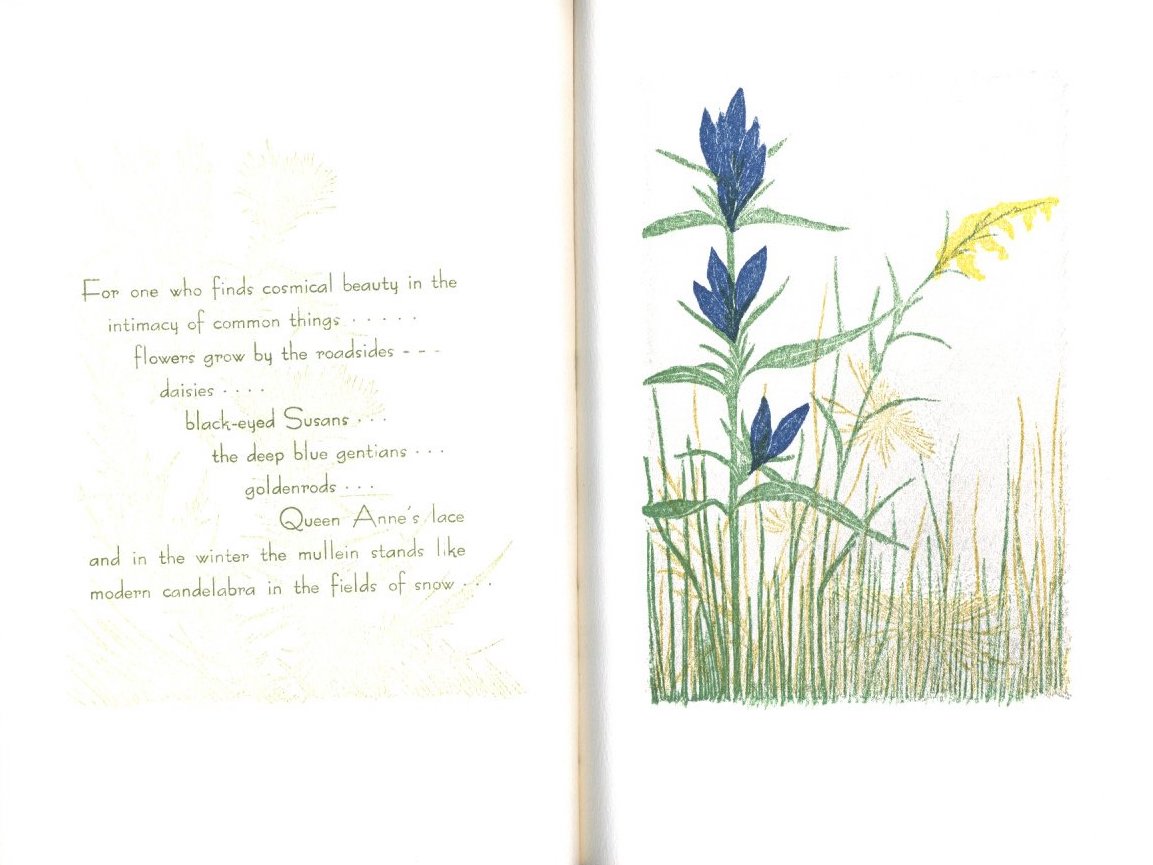 For one who finds cosmical beauty in the
intimacy of common things . . . . .
flowers grow by the roadsides - - -
daisies . . . .
black-eyed Susans . . .
the deep blue gentians . . .
goldenrods . . .
Queen Anne's lace
and in the winter the mullein stands like
modern candelabra in the fields of snow . . .